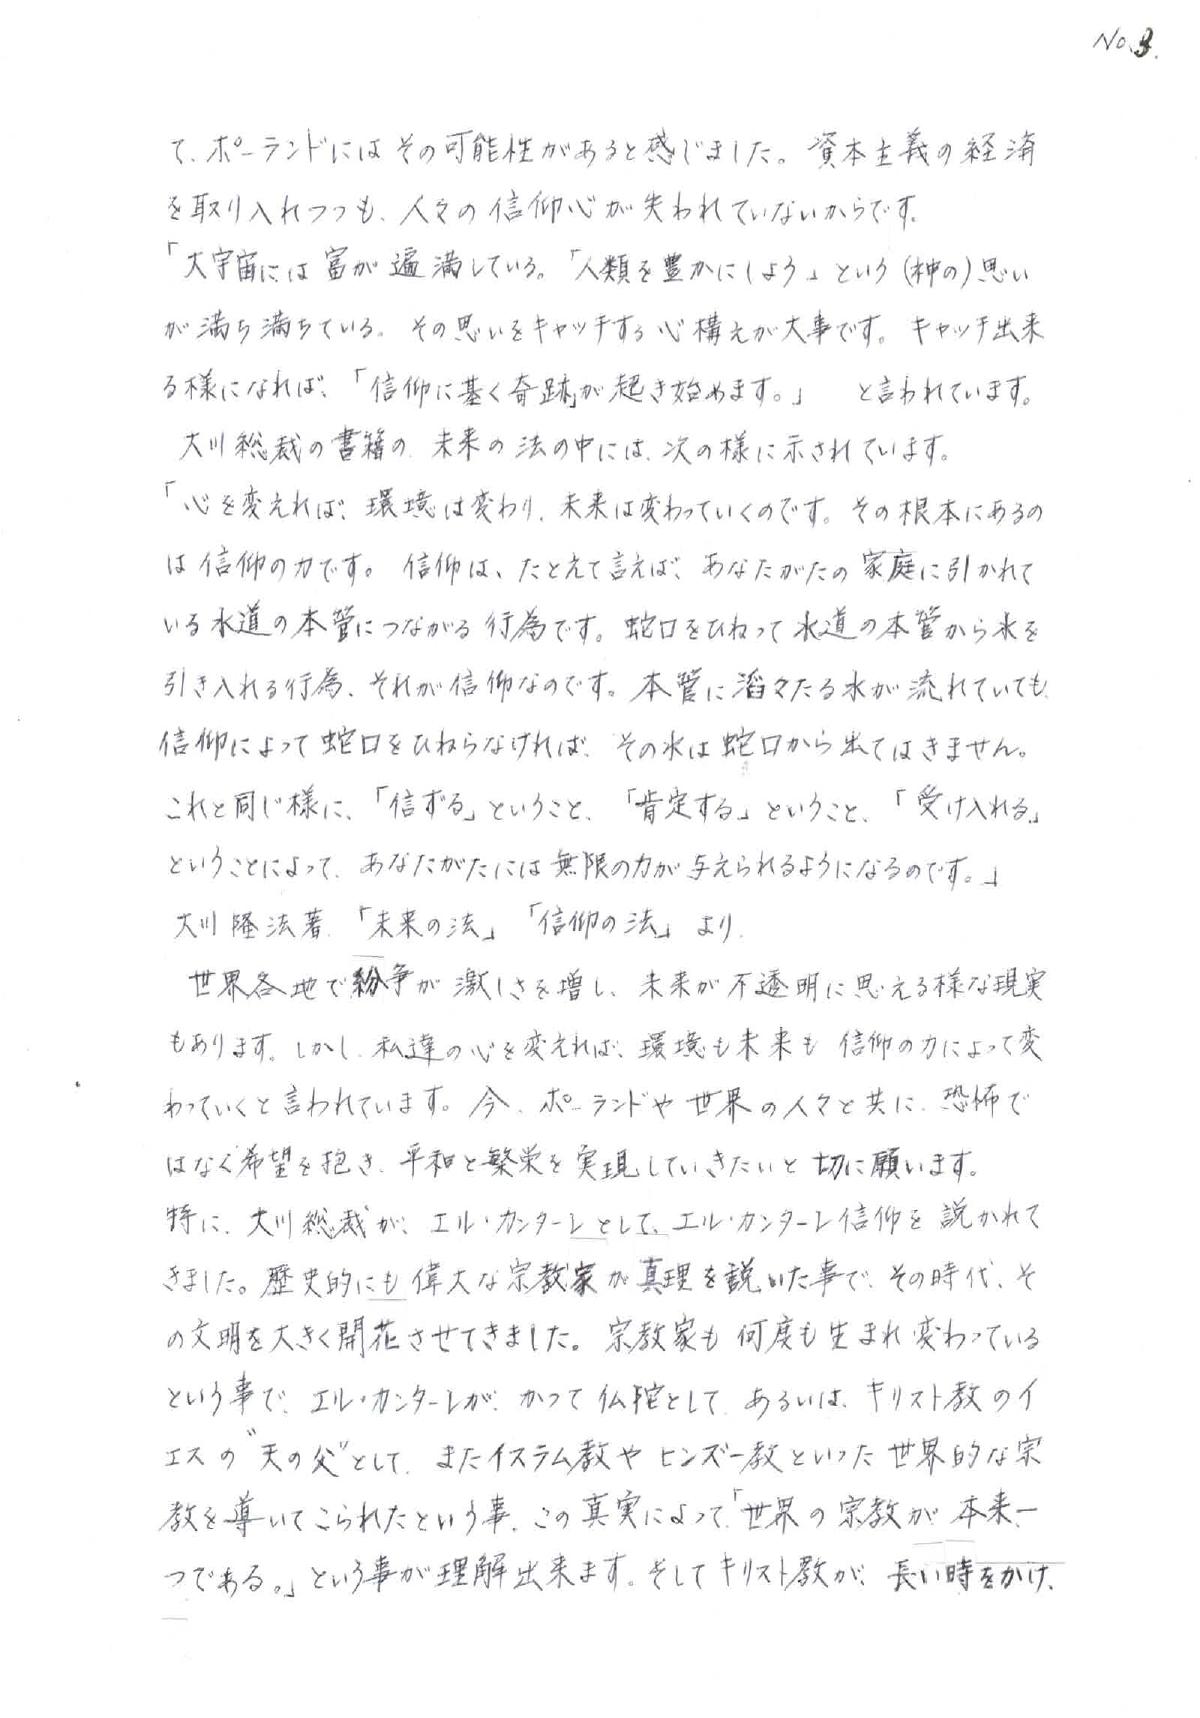 No.3.
て、ポーランドにはその可能性があると感じました。資本主義の経済
を取り入れつつも、人々の信仰心が失われていないからです。
「大宇宙には富が遍満している。「人類を豊かにしよう」という(神の)思い
が満ち満ちている。その思いをキャッチする心構えが大事です。キャッチ出来
る様になれば、「信仰に基く奇跡」が起き始めます。」 と言われています。
大川総裁の書籍の、未来の法の中には、次の様に示されています。
「心を変えれば、環境は変わり、未来は変わっていくのです。その根本にあるの
は信仰の力です。信仰は、たとえて言えば、あなたがたの家庭に引かれて
いる水道の本管につながる行為です。蛇口をひねって水道の本管から水を
引き入れる行為、それが信仰なのです。本管に滔々たる水が流れていても、
信仰によって蛇口をひねらなければ、その水は蛇口から出てはきません。
これと同じ様に、「信ずる」ということ、「肯定する」ということ、「受け入れる」
ということによって、あなたがたには無限の力が与えられるようになるのです。」
大川隆法著、「未来の法」「信仰の法」より、
世界各地で紛争が激しさを増し、未来が不透明に思える様な現実
もあります。しかし、私達の心を変えれば、環境も未来も信仰の力によって変
わっていくと言われています。今、ポーランドや世界の人々と共に、恐怖で
はなく希望を抱き、平和と繁栄を実現していきたいと切に願います。
特に、大川総裁が、エル・カンターレとして、エル・カンターレ信仰を説かれて
きました。歴史的にも偉大な宗教家が真理を説いた事で、その時代、そ
の文明を大きく開花させてきました。宗教家も何度も生まれ変わっている
という事で、エル・カンターレが、かつて仏陀として、あるいは、キリスト教のイ
エスの"天の父"として、またイスラム教やヒンズー教といった世界的な宗
教を導いてこられたという事、この真実によって「世界の宗教が本来一
つである。」という事が理解出来ます。そしてキリスト教が、長い時をかけ、